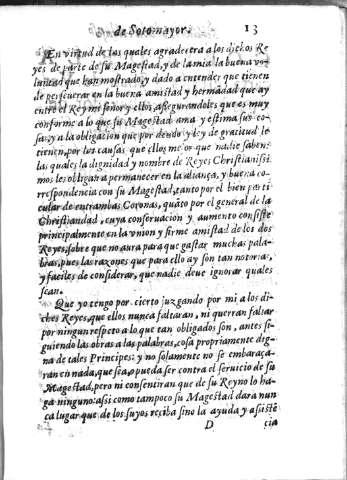 de Sotomayor. 13
En virtud de los quales agradecera a los dichos Re
yes de parte de su Magestad, y de la mia la buena vo
luntad que han mostrado, y dado a entender que tienen
de perseuerar en la buena amistad y hermãdad que ay
entre el Rey mi señor y ellos, assegurandoles que es muy
conforme a lo que su Magestad ama y estima sus co-
sas: y a la obligacion que por deudo y ley de gratitud le
tienen, por las causas que ellos mejor que nadie saben:
las quales la dignidad y nombre de Reyes Christianissi
mos les obligan a permanecer en la aliança, y buena co-
rrespondencia con su Magestad, tanto por el bien parti
cular de entrambas Coronas, quãto por el general de la
Christiandad, cuya conseruacion y aumento consiste
principalmente en la vnion y firme amistad de los dos
Reyes, sobre que no aura para que gastar muchas pala-
bras, pues las razones que para ello ay son tan notorias,
y faciles de considerar, que nadie deue ignorar quales
sean.
Que yo tengo por cierto juzgando por mi a los di-
chos Reyes, que ellos nunca faltaran, ni querran faltar
por ningun respeto a lo que tan obligados son, antes si-
guiendo las obras a las palabras, cosa propriamente dig-
na de tales Principes: y no solamente no se embaraça-
ran en nada, que sea, o pueda ser contra el seruicio de su
Magestad, pero ni consentiran que de su Reyno lo ha-
ga ninguno: assi como tampoco su Magestad dara nun
ca lugar que de los suyos reciba sino la ayuda y assiste
D cia